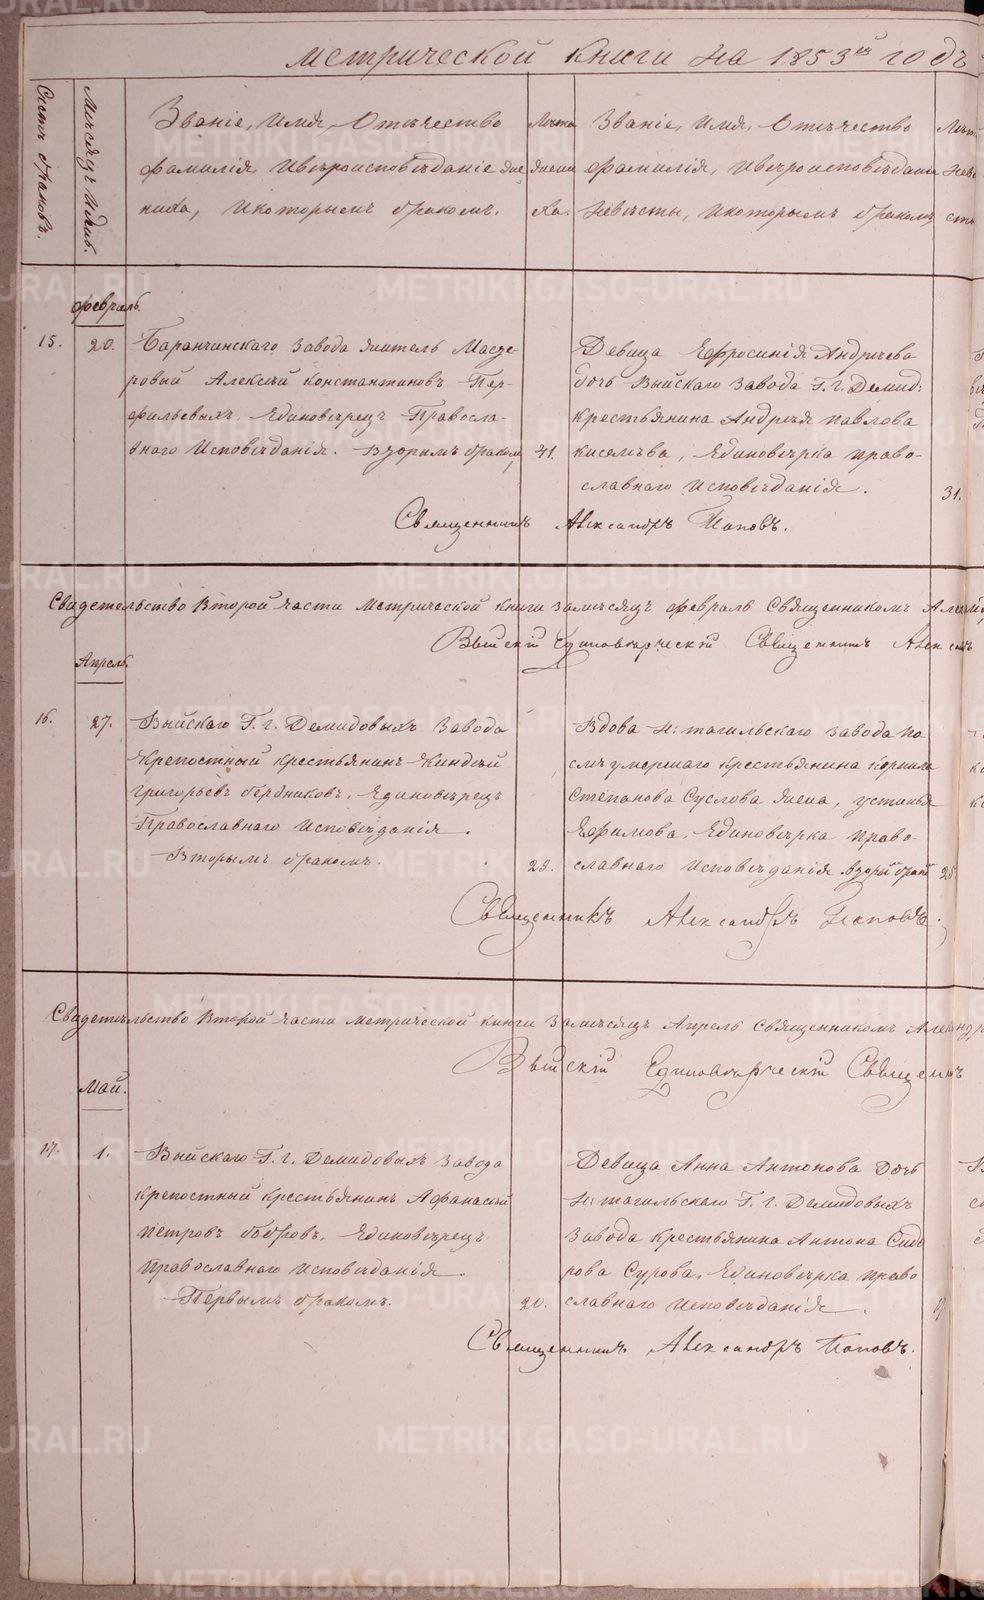 метрической книги на 1853й годъ
Счетъ браковъ.
Мѣсяцъ и день.
Званіе, имя, Отчество
фамилія, и вѣроисповѣданіе же
ниха, и которымъ бракомъ.
Лѣта
жени
ха.
Званіе, имя, Отчество
фамилія, и вѣроисповѣданіе
невѣсты, и которымъ бракомъ
Лѣт
невѣ
сты
февраль.
15.
20.
Баранчинскаго завода житель Масте-
ровый Алексѣй Константиновъ Пер-
фильевыхъ, Единовѣрецъ Правосла-
внаго Исповѣданія. Вторымъ бракомъ,
41.
Девица Ефросинія Андрѣева
дочь Выйскаго завода Г. г. Демид:
крестьянина Андрѣя павлова
киселѣва, Единовѣрка право-
славнаго исповѣданія.
31.
Священникъ Александръ Поповъ.
Свидетельство Второй части метрической книги за мѣсяцъ февраль Священникомъ
Выйскій Единовѣрческій Священникъ Алексан
Апрель.
16.
27.
Выйскаго Г. г. Демидовыхъ завода
крепостный крестьянинъ
григорьевъ бердниковъ, Единовѣрецъ
Православнаго исповѣданія.
Вторымъ бракомъ.
29.
Вдова Н: тагильскаго завода по
слѣ умершаго крестьянина корнила
Степанова Суслова жена, устинья
Ефимова, Единовѣрка право-
славнаго исповѣданія вторымъ брак
25
Священникъ Александръ Поповъ.
Свидетельство Второй части метрической книги за мѣсяцъ Апрель Священникомъ Александр
Выйскій Единовѣрческій Священникъ
Май.
17.
1.
Выйскаго Г. г. Демидовыхъ завода
крепостный крестьянинъ Афанасій
петровъ бобровъ, Единовѣрецъ
православнаго исповѣданія.
Первымъ бракомъ.
20.
Девица Анна Антонова дочь
Н: тагильскаго Г. г. Демидовыхъ
завода крестьянина Антона Сидо
рова Сурова, Единовѣрка право
славнаго исповѣданія.
Священникъ Александръ Поповъ.
METRIKI.GASO-URAL.RU